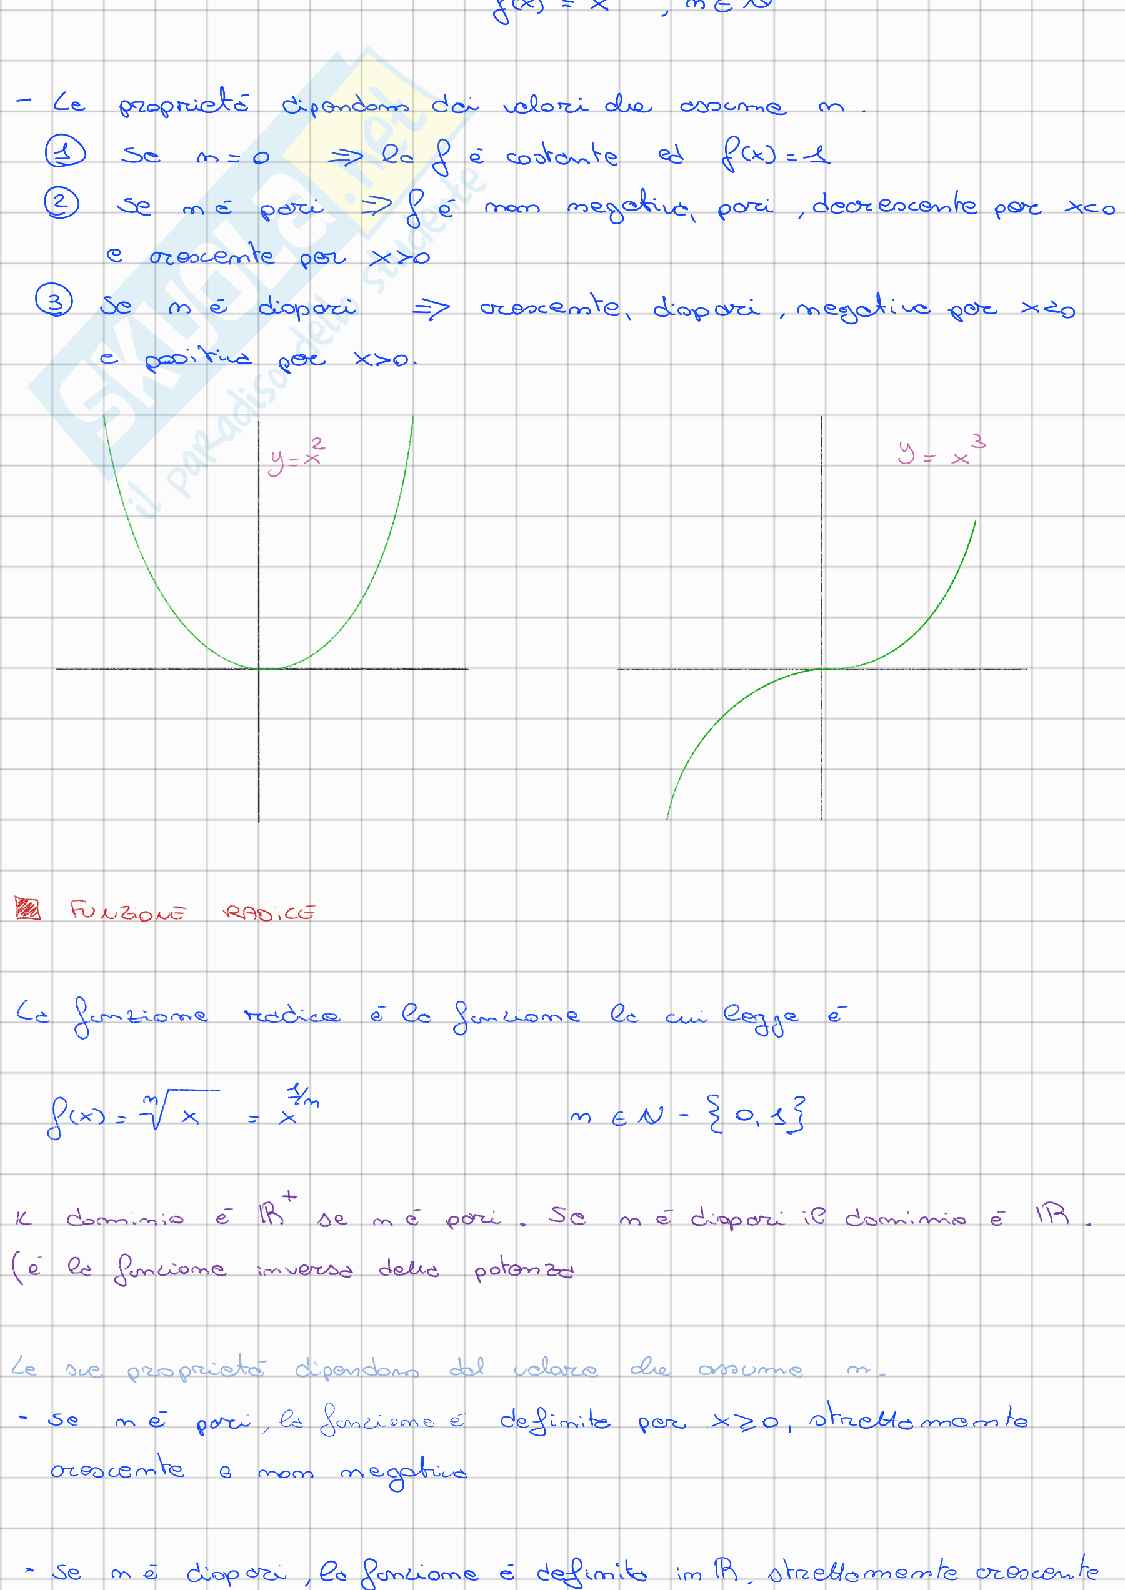 f(x) = x , n ∈ N
- Le proprietà dipendono dai valori che assume n.
① Se n = 0 ⇒ la f è costante ed f(x) = 1
② se n è pari ⇒ f è non negativa, pari, decrescente per x<0
e crescente per x>0
③ Se n è dispari ⇒ crescente, dispari, negativa per x<0
e positiva per x>0.
y = x² y = x³
FUNZIONE RADICE
La funzione radice è la funzione la cui legge è
f(x) = ⁿ√x = x^1/n n ∈ N - {0,1}
Il dominio è ℝ⁺ se n è pari. Se n è dispari il dominio è ℝ.
(è la funzione inversa della potenza
Le sue proprietà dipendono dal valore che assume n.
- se n è pari, la funzione è definita per x ≥ 0, strettamente
crescente e non negativa
- se n è dispari, la funzione è definita in ℝ, strettamente crescente
SKUOLA.net
il paradiso dello studente